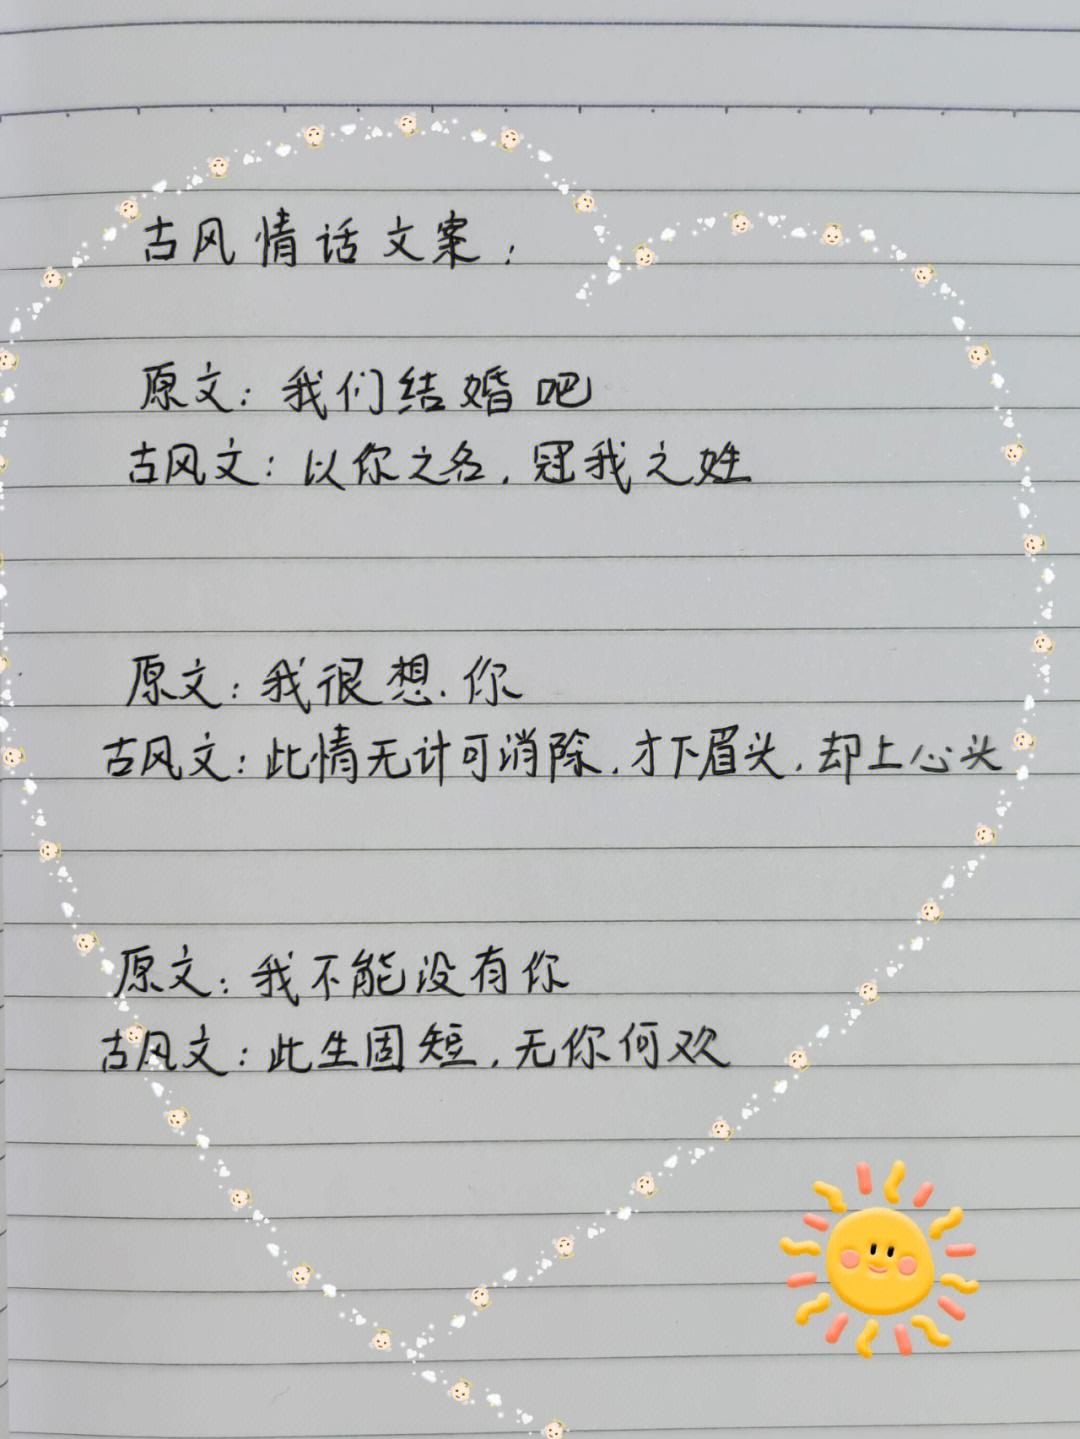 古风情话文案：
原文：我们结婚吧
古风文：以你之名，冠我之姓
原文：我很想你
古风文：此情无计可消除，才下眉头，却上心头
原文：我不能没有你
古风文：此生固短，无你何欢